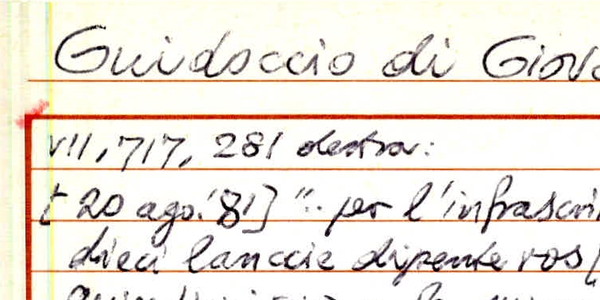 Guidoccio di Giova
VII, 717, 281 destra:
[20 ago. '81] "... per l'infrascri
dieci lanccie dipente ros[